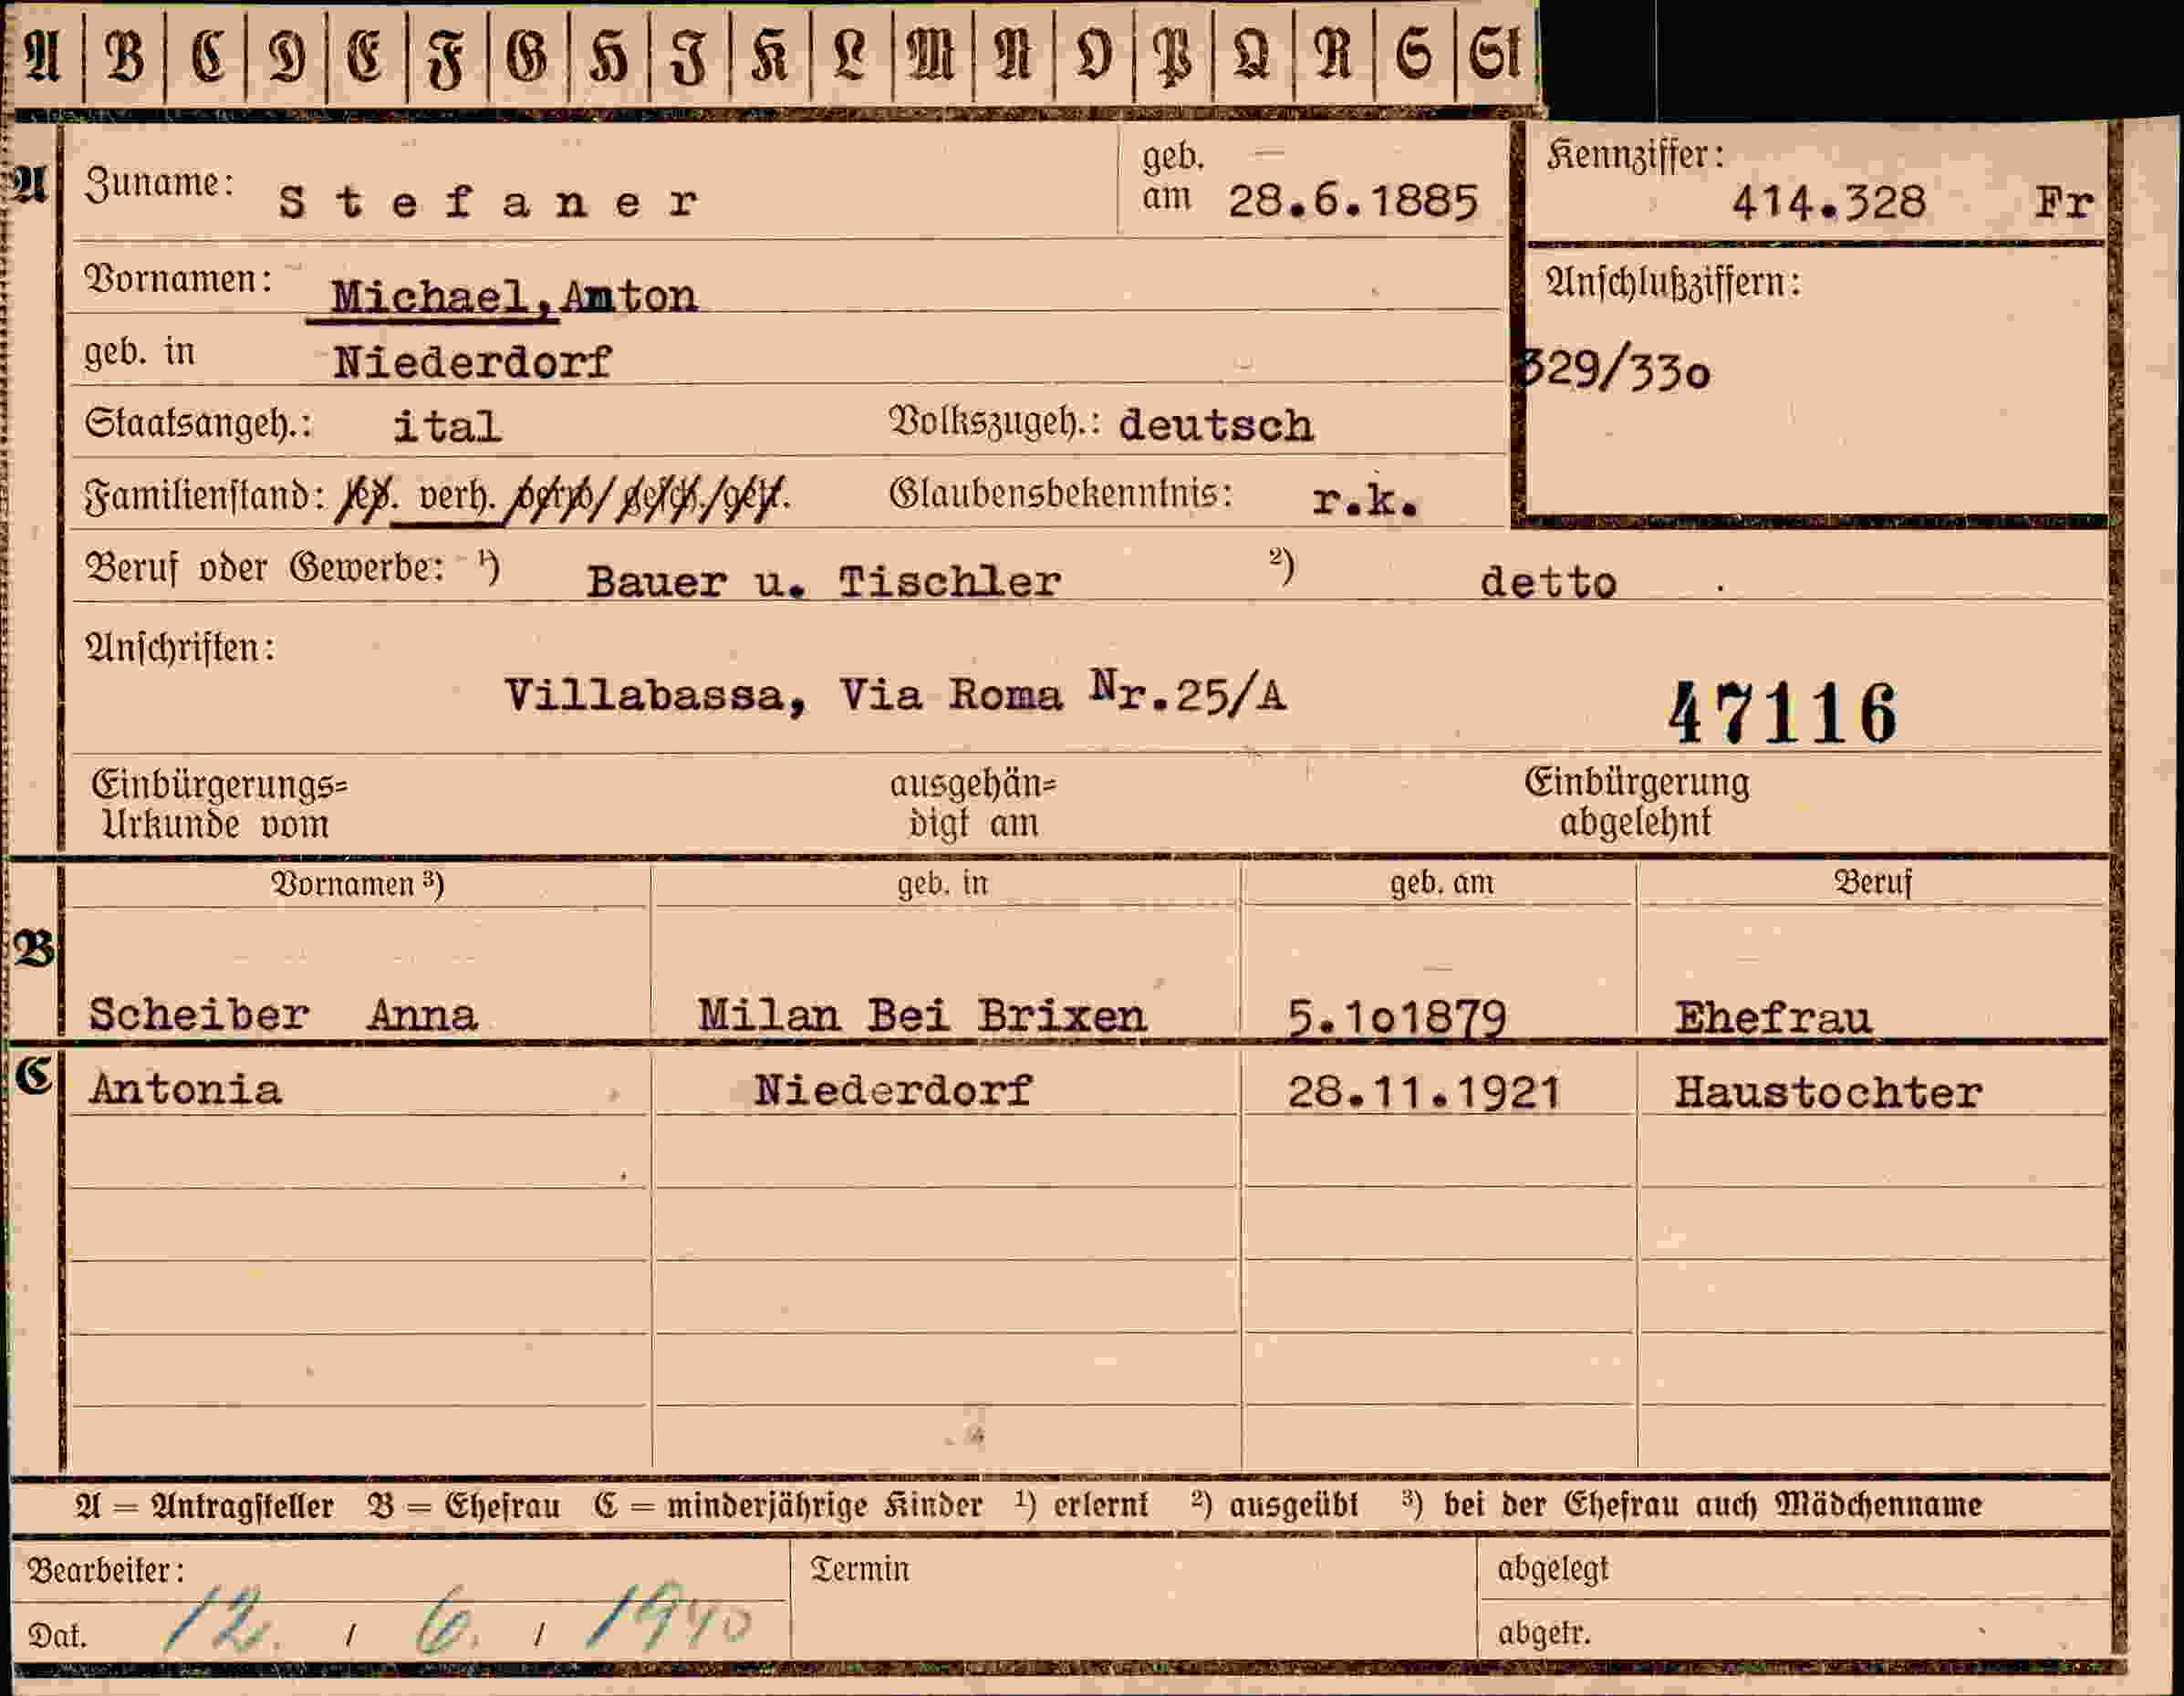 A B C D E F G H J K L M N O P Q R S St
A Zuname: Stefaner geb. am 28.6.1885 Kennziffer: 414.328 Fr
Vornamen: Michael,Anton Anschlußziffern:
geb. in Niederdorf 329/33o
Staatsangeh.: ital Volkszugeh.: deutsch
Familienstand: led. verh. verw./gesch./get. Glaubensbekenntnis: r.k.
Beruf oder Gewerbe: ¹) Bauer u. Tischler ²) detto
Anschriften:
Villabassa, Via Roma Nr.25/A 47116
Einbürgerungs= ausgehän= Einbürgerung
Urkunde vom digt am abgelehnt
Vornamen ³) geb. in geb. am Beruf
B
Scheiber Anna Milan Bei Brixen 5.1o1879 Ehefrau
C Antonia Niederdorf 28.11.1921 Haustochter
A = Antragsteller B = Ehefrau C = minderjährige Kinder ¹) erlernt ²) ausgeübt ³) bei der Ehefrau auch Mädchenname
Bearbeiter: Termin abgelegt
Dat. 12. / 6. / 1940 abgetr.